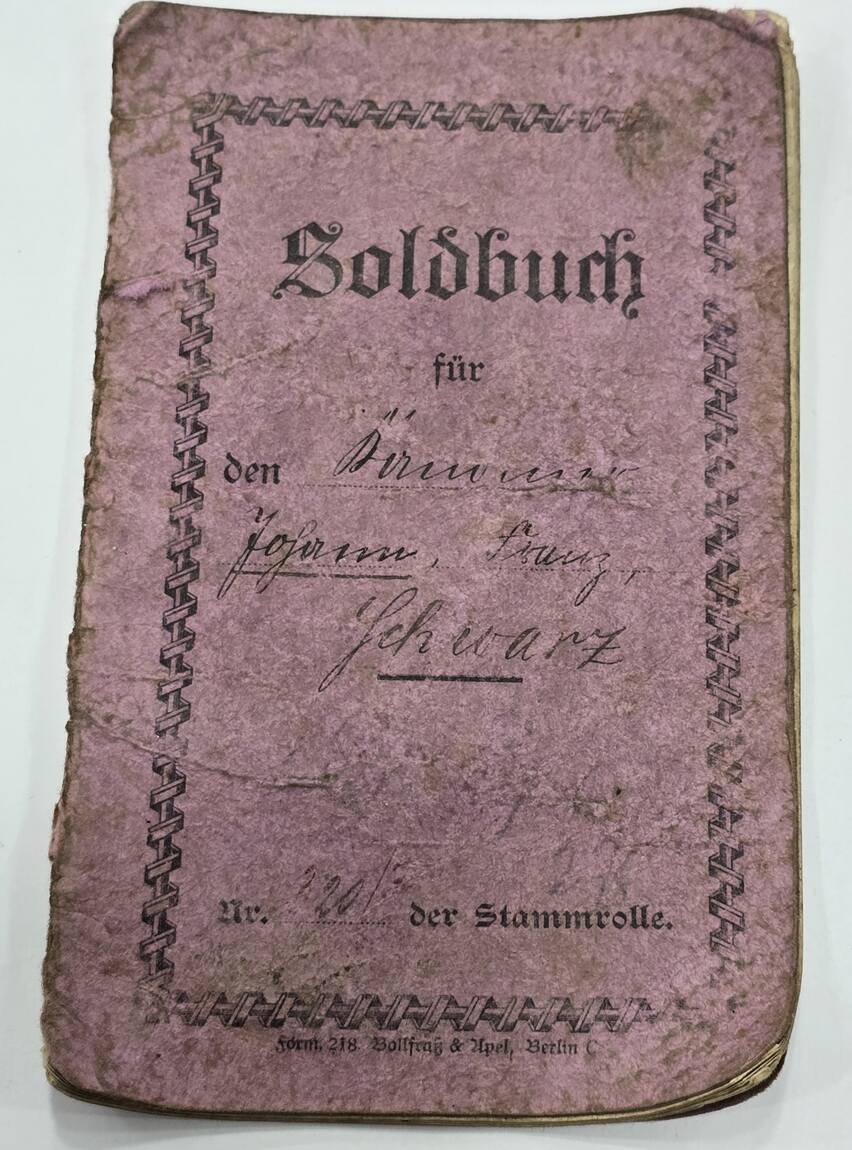 Soldbuch
für
den
Johann, Franz,
Schwarz
Nr. der Stammrolle.
Form. 218. Bollfraß & Apel, Berlin C